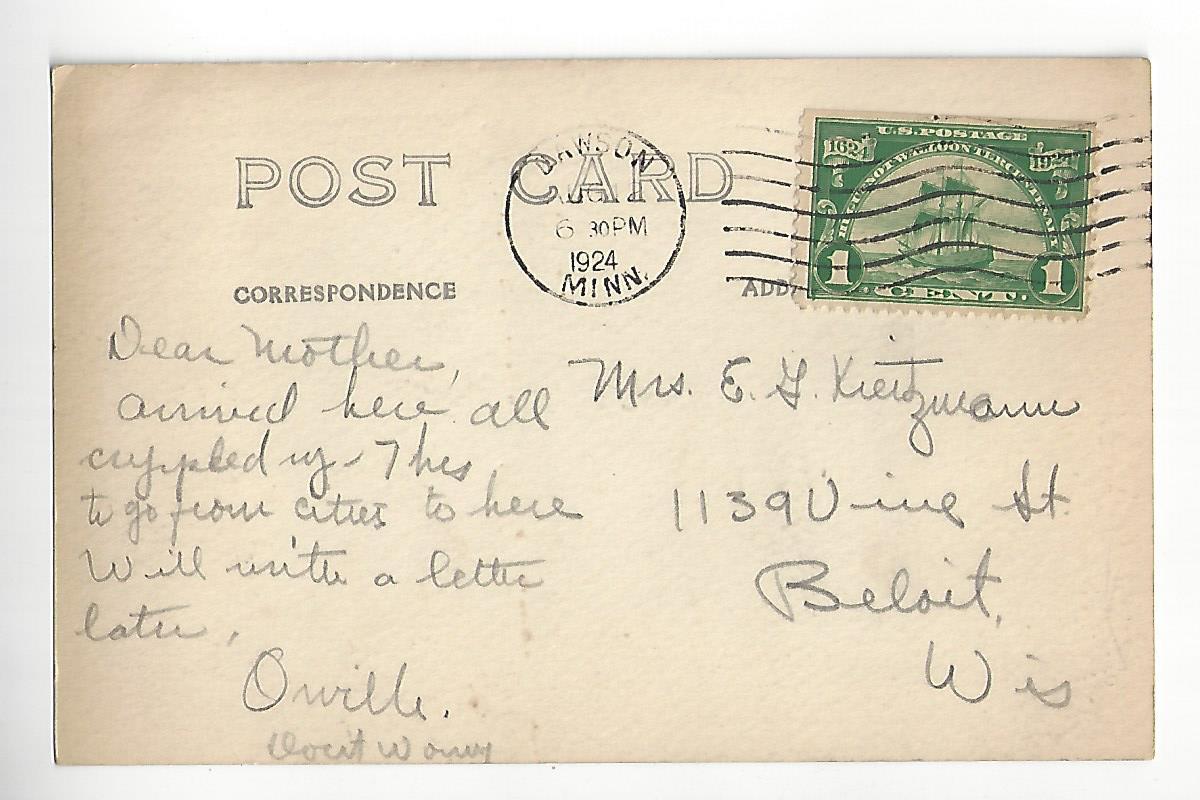 POST CARD
CORRESPONDENCE
DAWSON
6 30 PM
1924
MINN.
U.S. POSTAGE
1624 1924
HUGUENOT-WALLOON TERCENTENARY
1 CENT. 1
Dear Mother,
arrived here all
crippled up - 7 hrs
to go from cities to here
Will write a letter
later,
Orville.
Dont Worry
Mrs. E. G. Kietzmann
1139 Vine St.
Beloit,
Wis